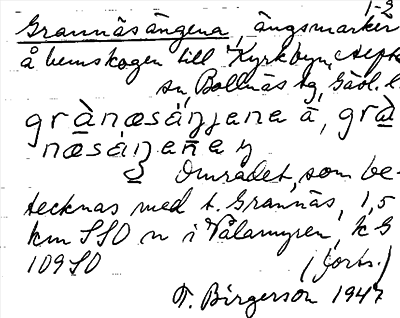 1-2
Grannäsängena, ängsmarker
å hemskogen till Kyrkbyn, Alfta
sn, Bollnäs tg, Gävl. l.
grànæsáŋjena ā, grà
næsáŋeńa y
Området, som be-
tecknas med t. Grannäs, 1,5
km SSO n i Vålamyren, k G
109 SO (forts.)
F. Birgerson 1947